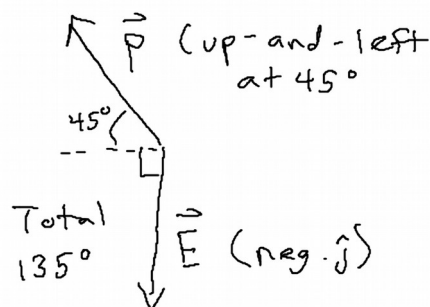 p⃗ (up-and-left
at 45°
45°
Total
135°
E⃗ (neg. ĵ)